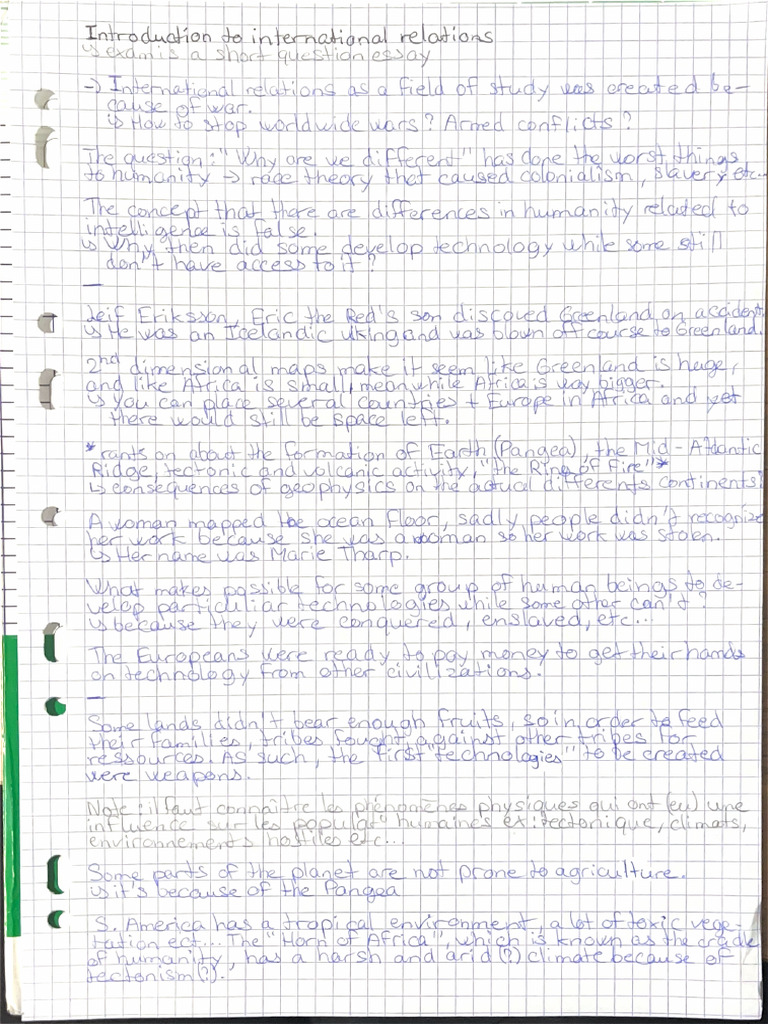 Introduction to international relations
↳ exam is a short question essay
→ International relations as a field of study was created be-
cause of war.
↳ How to stop worldwide wars? Armed conflicts?
The question: "Why are we different" has done the worst things
to humanity → race theory that caused colonialism, slavery etc...
The concept that there are differences in humanity related to
intelligence is false.
↳ Why then did some develop technology while some still
don't have access to it?
—
Leif Eriksson, Eric the Red's son discoved Greenland on accident.
↳ He was an Icelandic viking and was blown off course to Greenland.
2nd dimensional maps make it seem like Greenland is huge,
and like Africa is small, meanwhile Africa is way bigger.
↳ you can place several countries + Europe in Africa and yet
there would still be space left.
*rants on about the formation of Earth (Pangea), the Mid-Atlantic
Ridge, tectonic and volcanic activity, "the Ring of Fire"*
↳ consequences of geophysics on the actual differents continents
A woman mapped the ocean floor, sadly people didn't recognize
her work because she was a woman so her work was stolen.
↳ Her name was Marie Tharp.
What makes possible for some group of human beings to de-
velop particuliar technologies while some other can't?
↳ because they were conquered, enslaved, etc...
The Europeans were ready to pay money to get their hands
on technology from other civilizations.
—
Some lands didn't bear enough fruits, so in order to feed
their families, tribes fought against other tribes for
ressources. As such, the first "technologies" to be created
were weapons.
Note: il faut connaître les phénomènes physiques qui ont (eu) une
influence sur les populat° humaines ex: tectonique, climats,
environnements hostiles etc...
Some parts of the planet are not prone to agriculture.
↳ it's because of the Pangea
S. America has a tropical environment, a lot of toxic vege-
tation ect... The "Horn of Africa", which is known as the cradle
of humanity, has a harsh and arid (?) climate because of
tectonism (?).